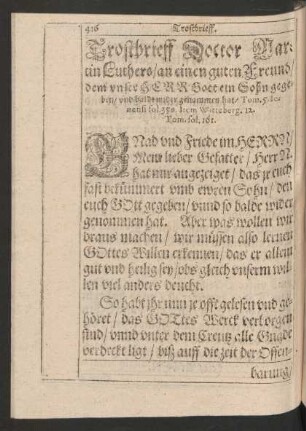 Trostbrieff.
Trostbrieff Doctor Mar-
tin Luthers/an einen guten Freund/
dem vnser HERR Gott ein Sohn gege-
ben/ vnd bald wider genommen hat/ Tom.
fol. Item, Witteberg. 12.
Tom. fol. 161.
GNad vnd Friede im HERRN/
Mein lieber Gefatter/ Herr N.
hat mir angezeiget/ das jr euch
fast bekümmert vmb ewren Sohn/ den
euch GOtt gegeben/ vnnd so balde wider
genommen hat. Aber was wollen wir
draus machen/ wir müssen also lernen
GOttes Willen erkennen/ das er allein
gut vnd heilig sey/ obs gleich vnserm wil-
len viel anders deucht.
So habt jhr nun je offt gelesen vnd ge-
höret/ das GOttes Werck verborgen
sind/ vnnd vnter dem Creutz alle Gnade
verdeckt ligt/ biß auff die zeit der Offen-
barung/